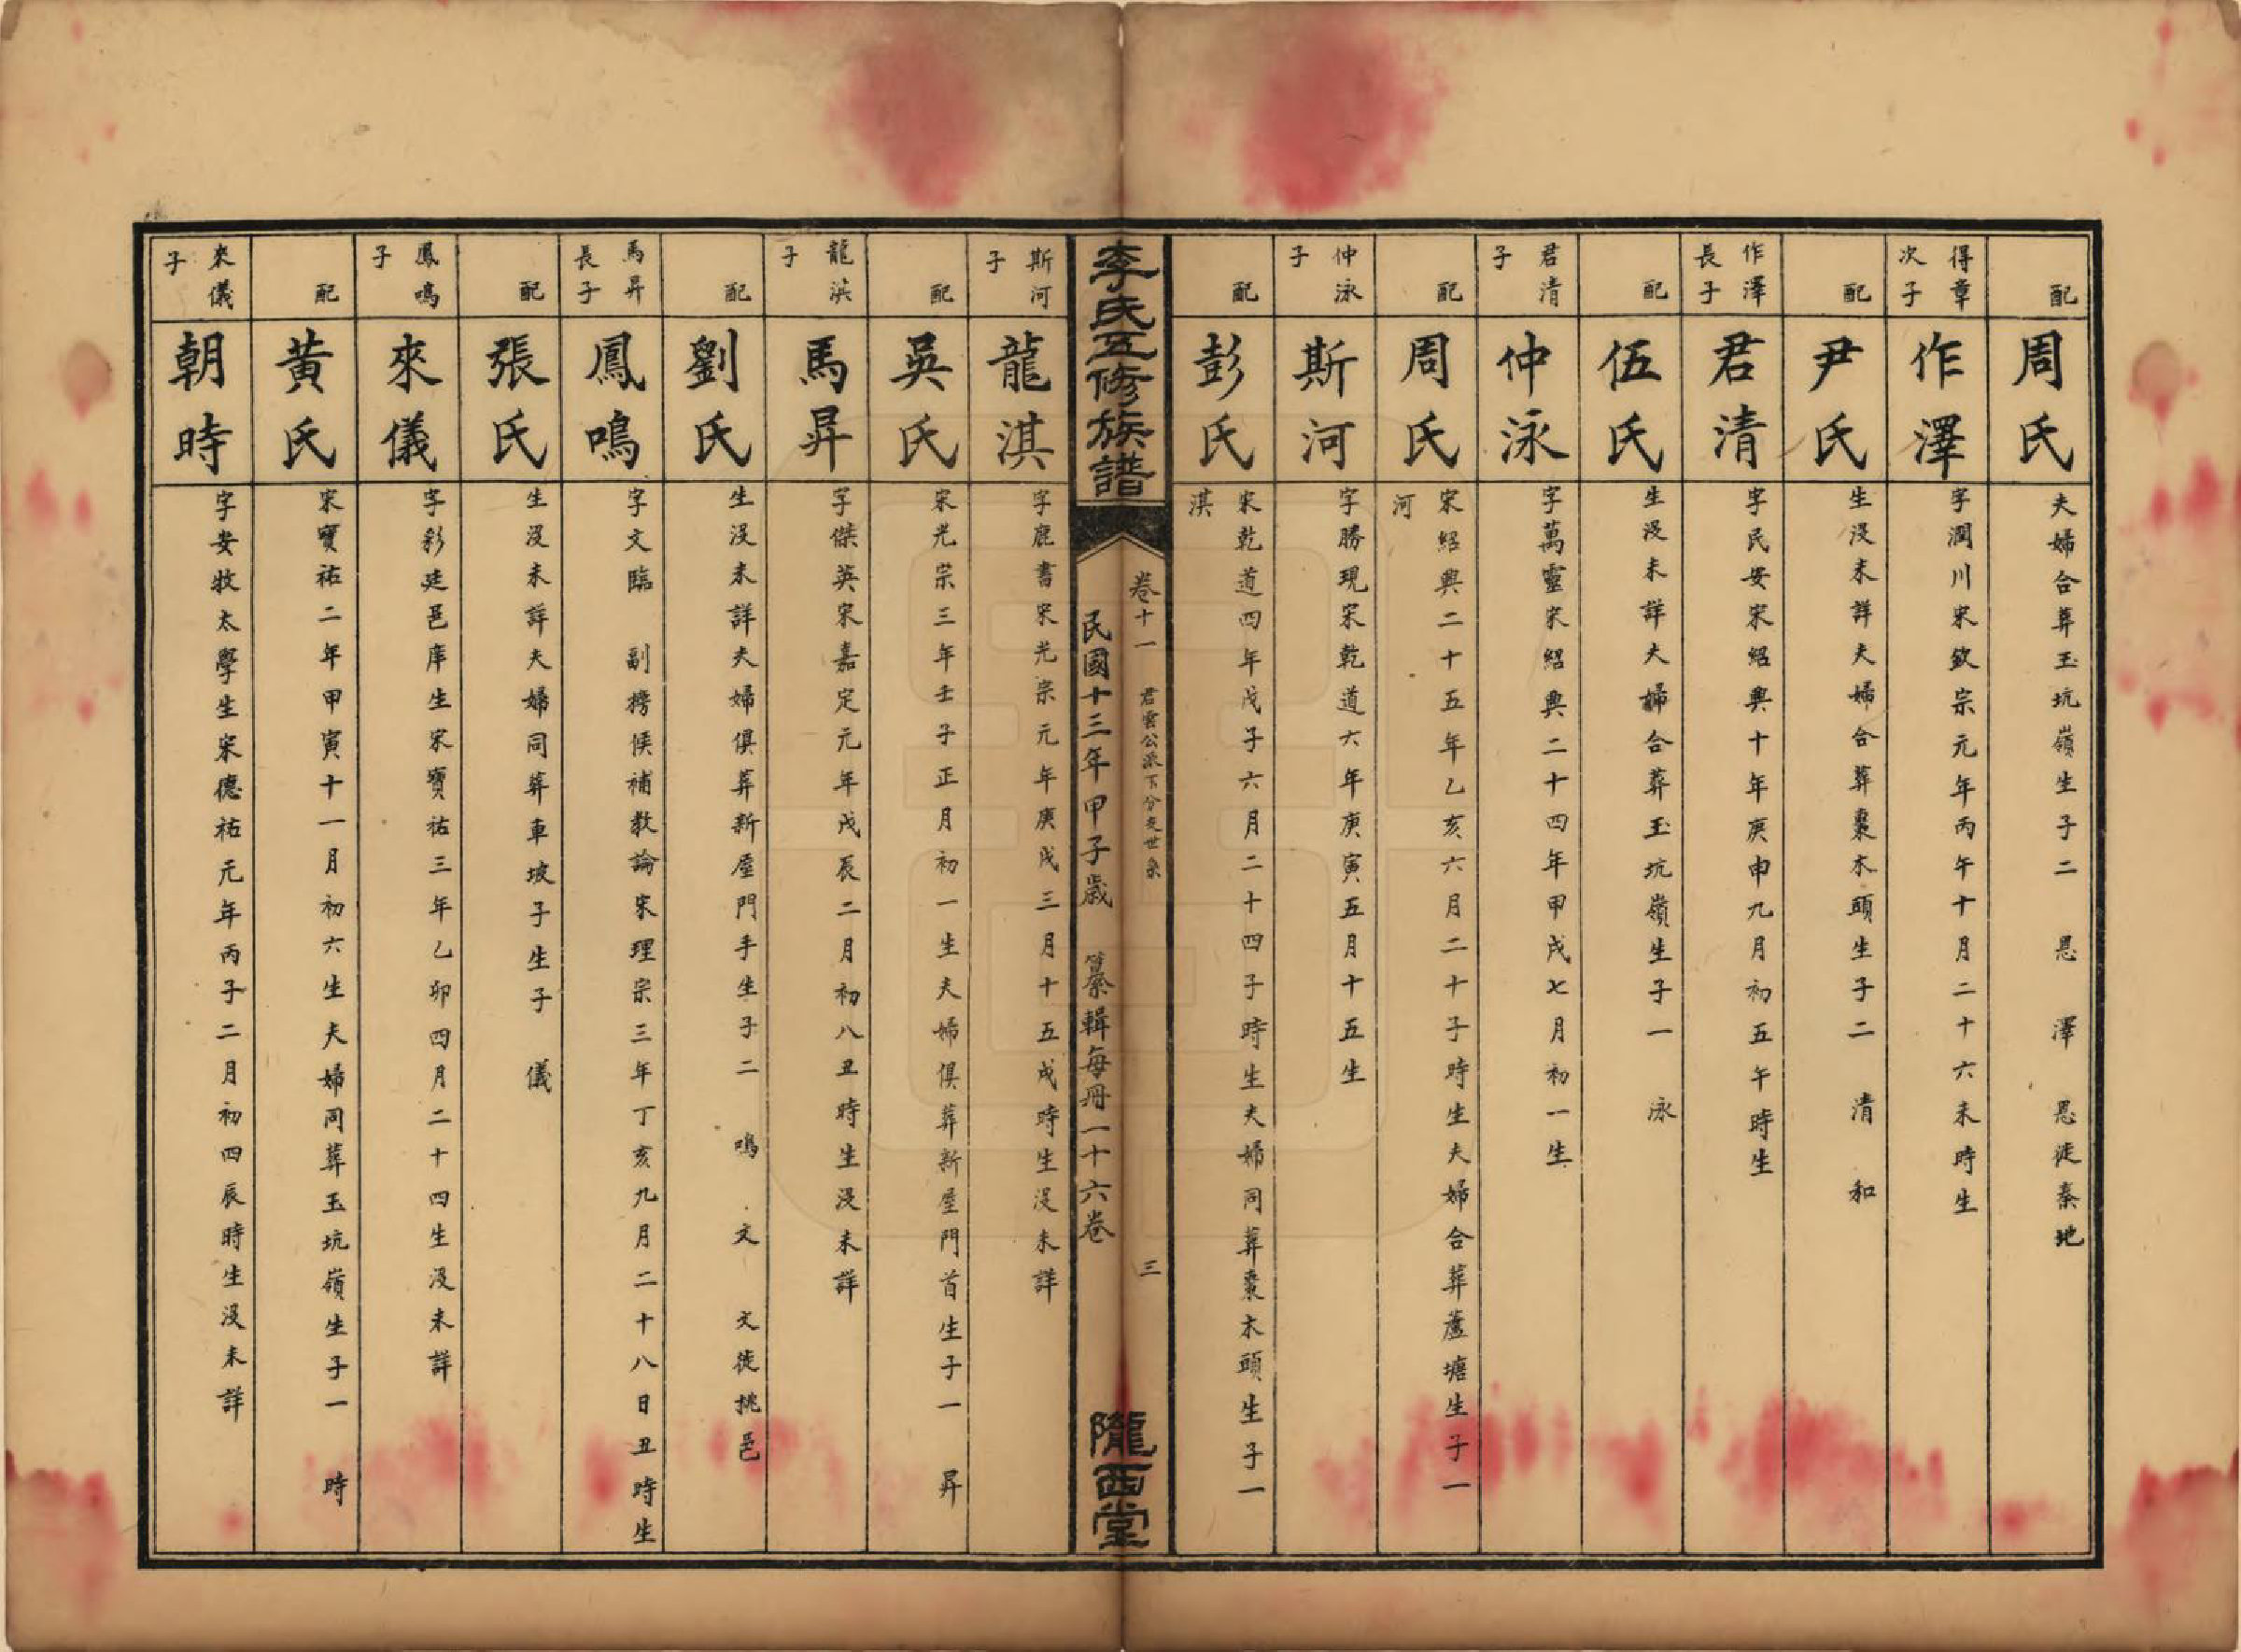 配
周氏
夫婦合葬玉坑嶺生子二 恩 澤 恩徙秦地
得章
次子
作澤
字潤川宋欽宗元年丙午十月二十六未時生
配
尹氏
生沒未詳夫婦合葬棗木頭生子二 清 和
作澤
長子
君清
字民安宋紹興十年庚申九月初五午時生
配
伍氏
生沒未詳夫婦合葬玉坑嶺生子一 泳
君清
子
仲泳
字萬靈宋紹興二十四年甲戌七月初一生
配
周氏
宋紹興二十五年乙亥六月二十子時生夫婦合葬蘆塘生子一
河
仲泳
子
斯河
字勝現宋乾道六年庚寅五月十五生
配
彭氏
宋乾道四年戊子六月二十四子時生夫婦同葬棗木頭生子一
淇
李氏五修族譜
卷十一 君雲公派下分支世系 三
民國十三年甲子歲 纂輯每冊一十六卷
隴西堂
斯河
子
龍淇
字鹿書宋光宗元年庚戌三月十五戌時生沒未詳
配
吳氏
宋光宗三年壬子正月初一生夫婦俱葬新屋門首生子一 昇
龍淇
子
馬昇
字傑英宋嘉定元年戊辰二月初八丑時生沒未詳
配
劉氏
生沒未詳夫婦俱葬新屋門手生子二 鳴 文 文徙桃邑
馬昇
長子
鳳鳴
字文臨 副榜候補教諭宋理宗三年丁亥九月二十八日丑時生
配
張氏
生沒未詳夫婦同葬車坡子生子 儀
鳳鳴
子
來儀
字彩廷邑庠生宋寶祐三年乙卯四月二十四生沒未詳
配
黃氏
宋寶祐二年甲寅十一月初六生夫婦同葬玉坑嶺生子一 時
來儀
子
朝時
字安牧太學生宋德祐元年丙子二月初四辰時生沒未詳